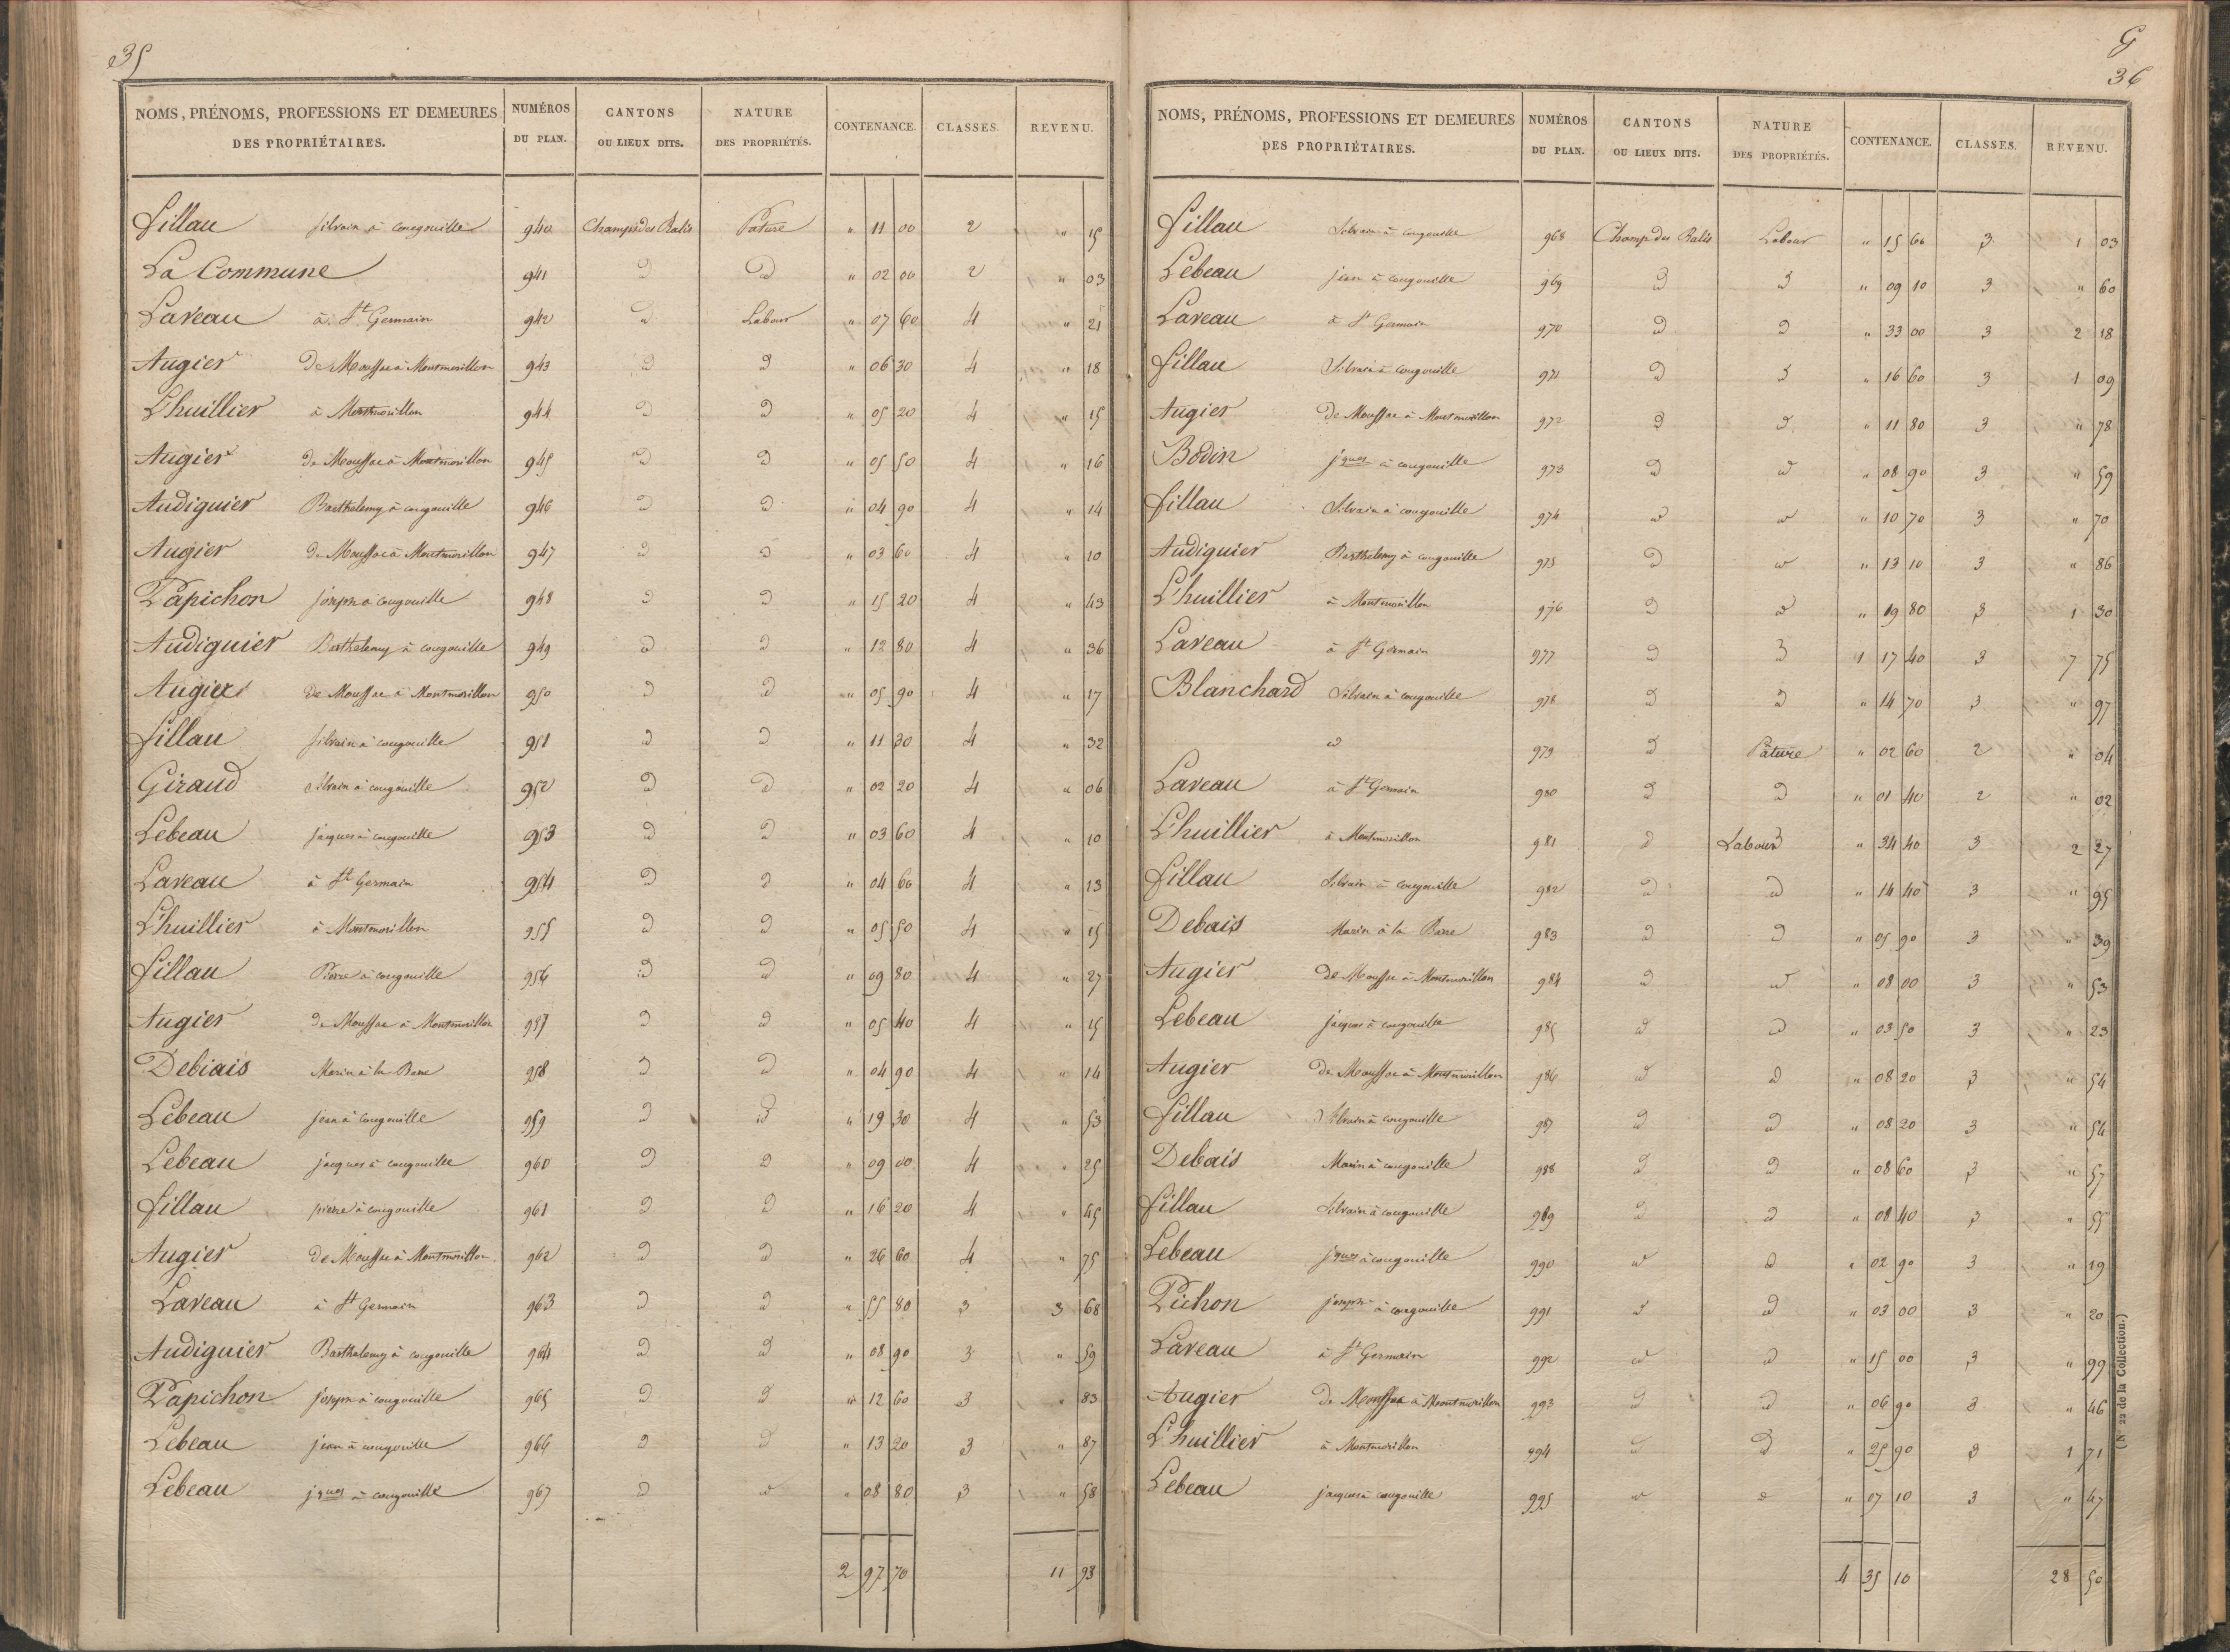 35
NOMS, PRÉNOMS, PROFESSIONS ET DEMEURES DES PROPRIÉTAIRES. NUMÉROS DU PLAN. CANTONS OU LIEUX DITS. NATURE DES PROPRIÉTÉS. CONTENANCE. CLASSES. REVENU.
fillau silvain à cougouille 940 Champs des Ralis Pature " 11 00 2 " 15
La Commune 941 d d " 02 00 2 " 03
Laveau à St Germain 942 d Labour " 07 60 4 " 21
Augier De Moussac à Montmorillon 943 d d " 06 30 4 " 18
L'huillier à Montmorillon 944 d d " 05 20 4 " 15
Augier de Moussac à Montmorillon 945 d d " 05 50 4 " 16
Audiguier Barthelemy à cougouille 946 d d " 04 90 4 " 14
Augier de Moussac à Montmorillon 947 d d " 03 60 4 " 10
Papichon joseph à cougouille 948 d d " 15 20 4 " 43
Audiguier Barthelemy à cougouille 949 d d " 12 80 4 " 36
Augier de Moussac à Montmorillon 950 d d " 05 90 4 " 17
fillau silvain à cougouille 951 d d " 11 30 4 " 32
Giraud silvain à cougouille 952 d d " 02 20 4 " 06
Lebeau jacques à cougouille 953 d d " 03 60 4 " 10
Laveau à St Germain 954 d d " 04 60 4 " 13
L'huillier à Montmorillon 955 d d " 05 50 4 " 15
fillau Pierre à cougouille 956 d d " 09 80 4 " 27
Augier de Moussac à Montmorillon 957 d d " 05 40 4 " 15
Debiais Marin à la Barre 958 d d " 04 90 4 " 14
Lebeau jean à cougouille 959 d d " 19 30 4 " 53
Lebeau jacques à cougouille 960 d d " 09 00 4 " 25
fillau pierre à cougouille 961 d d " 16 20 4 " 45
Augier de Moussac à Montmorillon 962 d d " 26 60 4 " 75
Laveau à St Germain 963 d d " 55 80 3 3 68
Audiguier Barthelemy à cougouille 964 d d " 08 90 3 " 59
Papichon joseph à cougouille 965 d d " 12 60 3 " 83
Lebeau jean à cougouille 966 d d " 13 20 3 " 87
Lebeau jques à cougouille 967 d d " 08 80 3 " 58
2 97 70 11 93
G
36
NOMS, PRÉNOMS, PROFESSIONS ET DEMEURES DES PROPRIÉTAIRES. NUMÉROS DU PLAN. CANTONS OU LIEUX DITS. NATURE DES PROPRIÉTÉS. CONTENANCE. CLASSES. REVENU.
fillau Silvain à cougouille 968 Champ des Ralis Labour " 15 60 3 1 03
Lebeau jean à cougouille 969 d d " 09 10 3 " 60
Laveau à St Germain 970 d d " 33 00 3 2 18
fillau Silvain à cougouille 971 d d " 16 60 3 1 09
Augier de Moussac à Montmorillon 972 d d " 11 80 3 " 78
Bodin jques à cougouille 973 d d " 08 90 3 " 59
fillau Silvain à cougouille 974 d d " 10 70 3 " 70
Audiguier Barthelemy à cougouille 975 d d " 13 10 3 " 86
L'huillier à Montmorillon 976 d d " 19 80 3 1 30
Laveau à St Germain 977 d d 1 17 40 3 7 75
Blanchard Silvain à cougouille 978 d d " 14 70 3 " 97
d 979 d Pâture " 02 60 2 " 04
Laveau à St Germain 980 d d " 01 40 2 " 02
L'huillier à Montmorillon 981 d Labour " 34 40 3 2 27
fillau Silvain à cougouille 982 d d " 14 40 3 " 95
Debais Marin à la Barre 983 d d " 05 90 3 " 39
Augier de Moussac à Montmorillon 984 d d " 08 00 3 " 53
Lebeau jacques à cougouille 985 d d " 03 50 3 " 23
Augier de Moussac à Montmorillon 986 d d " 08 20 3 " 54
fillau Silvain à cougouille 987 d d " 08 20 3 " 54
Debais Marin à cougouille 988 d d " 08 60 3 " 57
fillau Silvain à cougouille 989 d d " 08 40 3 " 55
Lebeau jques à cougouille 990 d d " 02 90 3 " 19
Pichon joseph à cougouille 991 d d " 03 00 3 " 20
Laveau à St Germain 992 d d " 15 00 3 " 99
Augier de Moussac à Montmorillon 993 d d " 06 90 3 " 46
L'huillier à Montmorillon 994 d d " 25 90 3 1 71
Lebeau jacques à cougouille 995 d d " 07 10 3 " 47
4 35 10 28 50
(N° 22 de la Collection.)